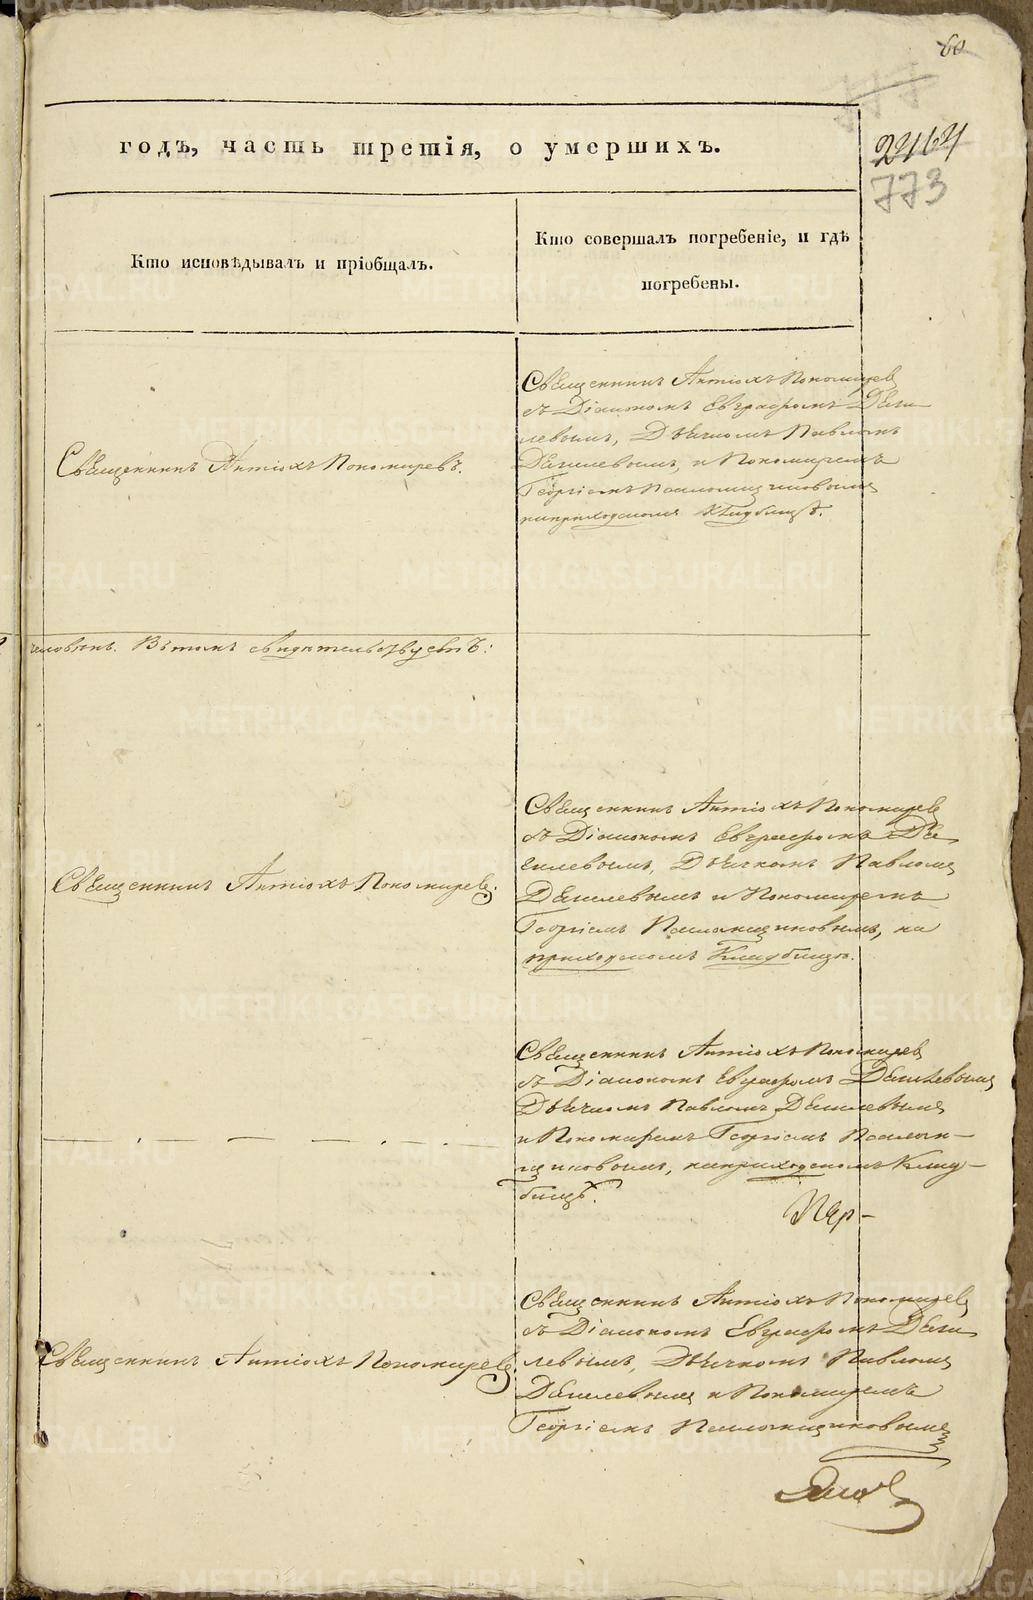 60
годъ, часть третія, о умершихъ.
2464
773
Кто исповѣдывалъ и пріобщалъ.
Кто совершалъ погребеніе, и гдѣ
погребены.
Священникъ Антіохъ Пономаревъ.
Священникъ Антіохъ Пономаревъ
съ Діакономъ Евграфомъ
Дьячкомъ Павломъ
и Пономаремъ
Георгіемъ
на приходскомъ кладбищѣ.
человѣкъ. Въ томъ свидѣтельствуетъ:
Священникъ Антіохъ Пономаревъ.
Священникъ Антіохъ Пономаревъ
съ Діакономъ Евграфомъ
Дьячкомъ Павломъ
и Пономаремъ
Георгіемъ на
приходскомъ кладбищѣ.
Священникъ Антіохъ Пономаревъ
съ Діакономъ Евграфомъ
Дьячкомъ Павломъ
и Пономаремъ Георгіемъ
на приходскомъ клад-
бищѣ.
Священникъ Антіохъ Пономаревъ.
Священникъ Антіохъ Пономаревъ
съ Діакономъ Евграфомъ
Дьячкомъ Павломъ
и Пономаремъ
Георгіемъ
METRIKI.GASO-URAL.RU